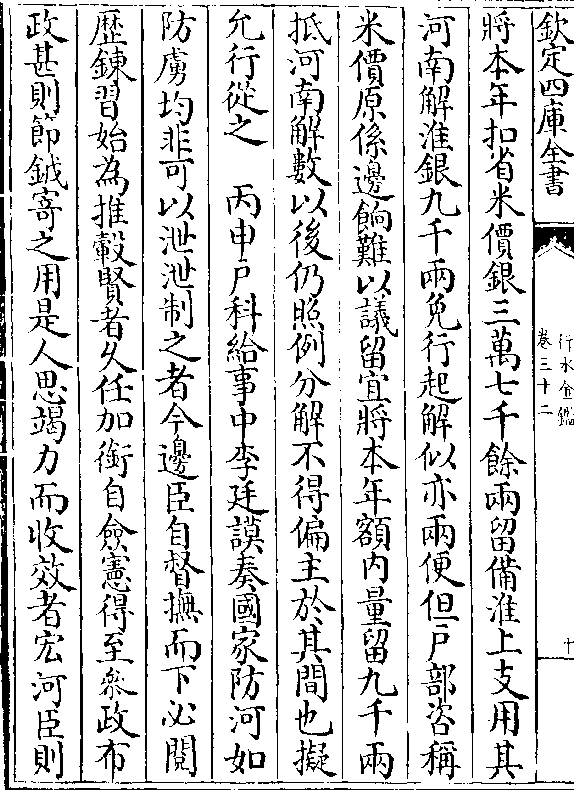 欽定四庫全書
行水金鑑
卷三十二
十
將本年扣省米價銀三萬七千餘兩留備淮上支用其
河南解淮銀九千兩免行起解似亦兩便但戶部咨稱
米價原係邊餉難以議留宜將本年額内量留九千兩
抵河南解數以後仍照例分解不得偏主於其間也擬
允行從之　丙申戶科給事中李廷謨奏國家防河如
防虜均非可以泄泄制之者今邊臣自督撫而下必閲
歴鍊習始為推轂賢者乆任加銜自僉憲得至叅政布
政甚則節鉞寄之用是人思竭力而收效者宏河臣則